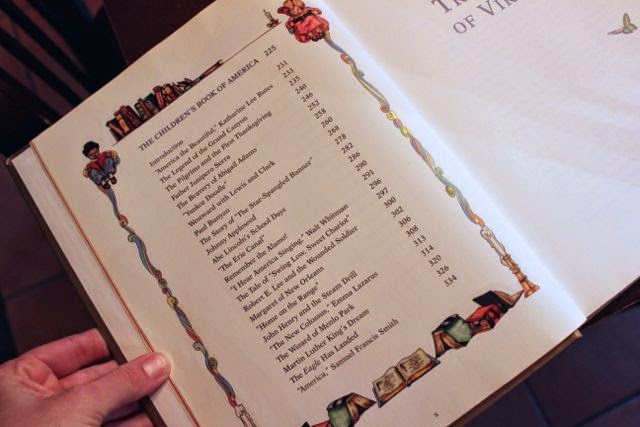 THE CHILDREN'S BOOK OF AMERICA 225
Introduction 231
"America the Beautiful," Katharine Lee Bates 233
The Legend of the Grand Canyon 235
The Pilgrims and the First Thanksgiving 240
Father Junipero Serra 246
The Bravery of Abigail Adams 252
"Yankee Doodle" 258
Westward with Lewis and Clark 260
Paul Bunyan 268
The Story of "The Star-Spangled Banner" 278
Johnny Appleseed 282
Abe Lincoln's School Days 286
"The Erie Canal" 290
Remember the Alamo! 291
"I Hear America Singing," Walt Whitman 296
The Tale of "Swing Low, Sweet Chariot" 297
Robert E. Lee and the Wounded Soldier 300
Margaret of New Orleans 302
"Home on the Range" 306
John Henry and the Steam Drill 308
"The New Colossus," Emma Lazarus 313
The Wizard of Menlo Park 314
Martin Luther King's Dream 320
The Eagle Has Landed 326
"America," Samuel Francis Smith 334
x
OF